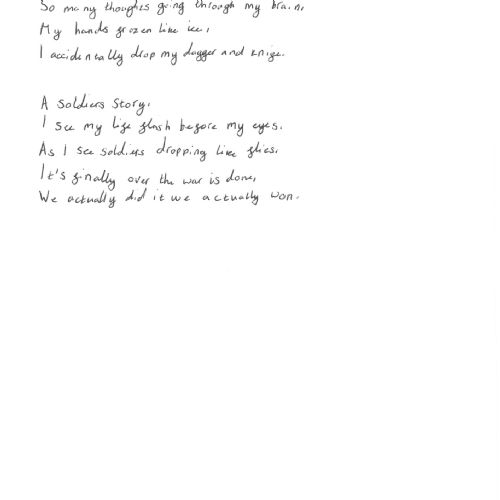 So many thoughts going through my brain,
My hands frozen like ice,
I accidentally drop my dagger and knife.
A soldiers story,
I see my life flash before my eyes.
As I see soldiers dropping like flies.
It's finally over the war is done,
We actually did it we actually won.